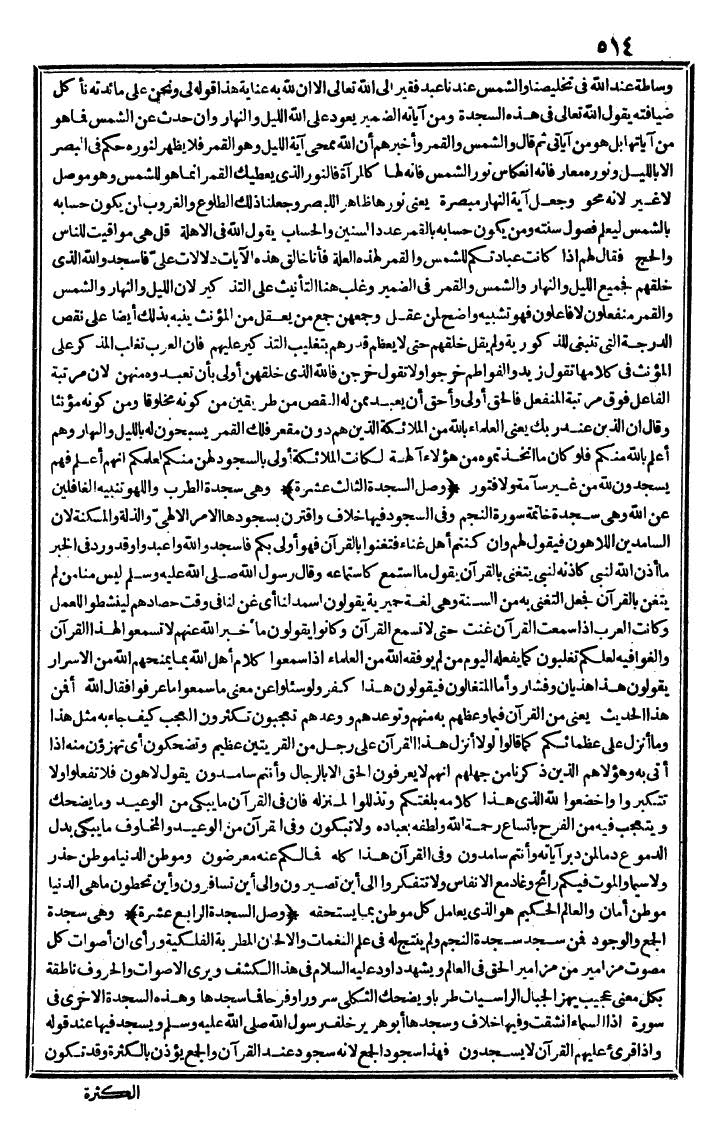 ٥١٤
وساطة عند الله فى تخليصنا والشمس عندنا عبد فقير الى الله تعالى الا ان لله به عناية هذا قوله لى ونحن على مائدته نأكل
ضيافته يقول الله تعالى فى هذه السجدة ومن آياته الضمير يعود على الله الليل والنهار وان حدث عن الشمس فما هو
من آياتها بل هو من آياتى ثم قال والشمس والقمر وأخبرهم أن الله ممحى آية الليل وهو القمر فلا يظهر لنوره حكم فى البصر
الا بالليل ونوره معار فانه انعكاس نور الشمس فانه لها كالمرآة فالنور الذى يعطيك القمر انما هو للشمس وهو موصل
لا غير لانه محو وجعل آية النهار مبصرة يعنى نورها ظاهرا للبصر وجعلنا ذلك الطلوع والغروب لمن يكون حسابه
بالشمس ليعلم فصول سنته ومن يكون حسابه بالقمر عدد السنين والحساب يقول الله فى الاهلة قل هى مواقيت للناس
والحج فقال لهم اذا كانت عبادتكم للشمس والقمر لهذه العلة فأنا خالق هذه الآيات دلالات علىّ فاسجدوا لله الذى
خلقهم فجميع الليل والنهار والشمس والقمر فى الضمير وغلب هنا التأنيث على التذكير لان الليل والنهار والشمس
والقمر منفعلون لا فاعلون فهو تشبيه واضح لمن عقل وجمعهن جمع من يعقل من المؤنث ينبه بذلك أيضا على نقص
الدرجة التى تنبغى للذكورية ولم يقل خلقهم حتى لا يعظم قدرهم بتغليب التذكير عليهم فان العرب تغلب المذكر على
المؤنث فى كلامها تقول زيد والفواطم خرجوا ولا تقول خرجن فالله الذى خلقهن أولى بأن تعبدوه منهن لان مرتبة
الفاعل فوق مرتبة المنفعل فالحق أولى وأحق أن يعبد ممن له النقص من طريقين من كونه مخلوقا ومن كونه مؤنثا
وقال ان الذين عند ربك يعنى العلماء بالله من الملائكة الذين هم دون مقعر فلك القمر يسبحون له بالليل والنهار وهم
أعلم بالله منكم فلو كان ما اتخذتموه من هؤلاء آلهة لكانت الملائكة أولى بالسجود لهن منكم لعلمكم انهم أعلم فهم
يسجدون لله من غير سآمة ولا فتور ﴿وصل السجدة الثالث عشرة﴾ وهى سجدة الطرب واللهو تنبيه الغافلين
عن الله وهى سجدة خاتمة سورة النجم وفى السجود فيها خلاف واقترن بسجودها الامر الالهىّ والذلة والمسكنة لان
السامدين اللاهون فيقول لهم وان كنتم أهل غناء فتغنوا بالقرآن فهو أولى بكم فاسجدوا لله واعبدوا وقد ورد فى الخبر
ما أذن الله لنبى كاذنه لنبى يتغنى بالقرآن يقول ما استمع كاستماعه وقال رسول الله صلى الله عليه وسلم ليس منا من لم
يتغن بالقرآن فجعل التغنى به من السنة وهى لغة حميرية يقولون اسمد لنا أى غن لنا فى وقت حصادهم لينشطوا للعمل
وكانت العرب اذا سمعت القرآن غنت حتى لا تسمع القرآن وكانوا يقولون ما أخبر الله عنهم لا تسمعوا لهذا القرآن
والغوا فيه لعلكم تغلبون كما يفعله اليوم من لم يوفقه الله من العلماء اذا سمعوا كلام أهل الله بما يمنحهم الله من الاسرار
يقولون هذا هذيان وفشار وأما المتغالون فيقولون هذا كفر ولو سئلوا عن معنى ما سمعوا ما عرفوا فقال الله أفمن
هذا الحديث يعنى من القرآن فيما وعظهم به منهم وتوعدهم ووعدهم تعجبون تكثرون العجب كيف جاء به مثل هذا
وما أنزل على عظمائكم كما قالوا لولا أنزل هذا القرآن على رجل من القريتين عظيم وتضحكون أى تهزؤن منه اذا
أتى به وهؤلاهم الذين ذكرنا من جهلهم انهم لا يعرفون الحق الا بالرجال وأنتم سامدون يقول لاهون فلا تفعلوا ولا
تتكبروا واخضعوا لله الذى هذا كلامه بلغتكم وتذللوا لمنزله فان فى القرآن ما يبكى من الوعيد وما يضحك
ويتعجب فيه من الفرح باتساع رحمة الله ولطفه بعباده ولا تبكون وفى القرآن من الوعيد والمخاوف ما يبكى بدل
الدموع دما لمن دبر آياته وأنتم سامدون وفى القرآن هذا كله فمالكم عنه معرضون وموطن الدنيا موطن حذر
ولا سيما والموت فيكم رائح وغاد مع الانفاس ولا تتفكروا الى أين تصيرون والى أين تسافرون وأين تحطون ماهى الدنيا
موطن أمان والعالم الحكيم هو الذى يعامل كل موطن بما يستحقه ﴿وصل السجدة الرابع عشرة﴾ وهى سجدة
الجمع والوجود فمن سجد سجدة النجم ولم ينتج له فى علم النغمات والالحان المطربة الفلكية ورأى ان أصوات كل
مصوت مزامير من مزامير الحق فى العالم ويشهد داود عليه السلام فى هذا الكشف ويرى الاصوات والحروف ناطقة
بكل معنى عجيب يهز الجبال الراسيات طربا ويضحك الثكلى سرورا وفرحا فما سجدها وهذه السجدة الاخرى فى
سورة اذا السماء انشقت وفيها خلاف وسجدها أبو هريرة خلف رسول الله صلى الله عليه وسلم ويسجد فيها عند قوله
واذا قرئ عليهم القرآن لا يسجدون فهذا سجود الجمع لانه سجود عند القرآن والجمع يؤذن بالكثرة وقد تكون
الكثرة